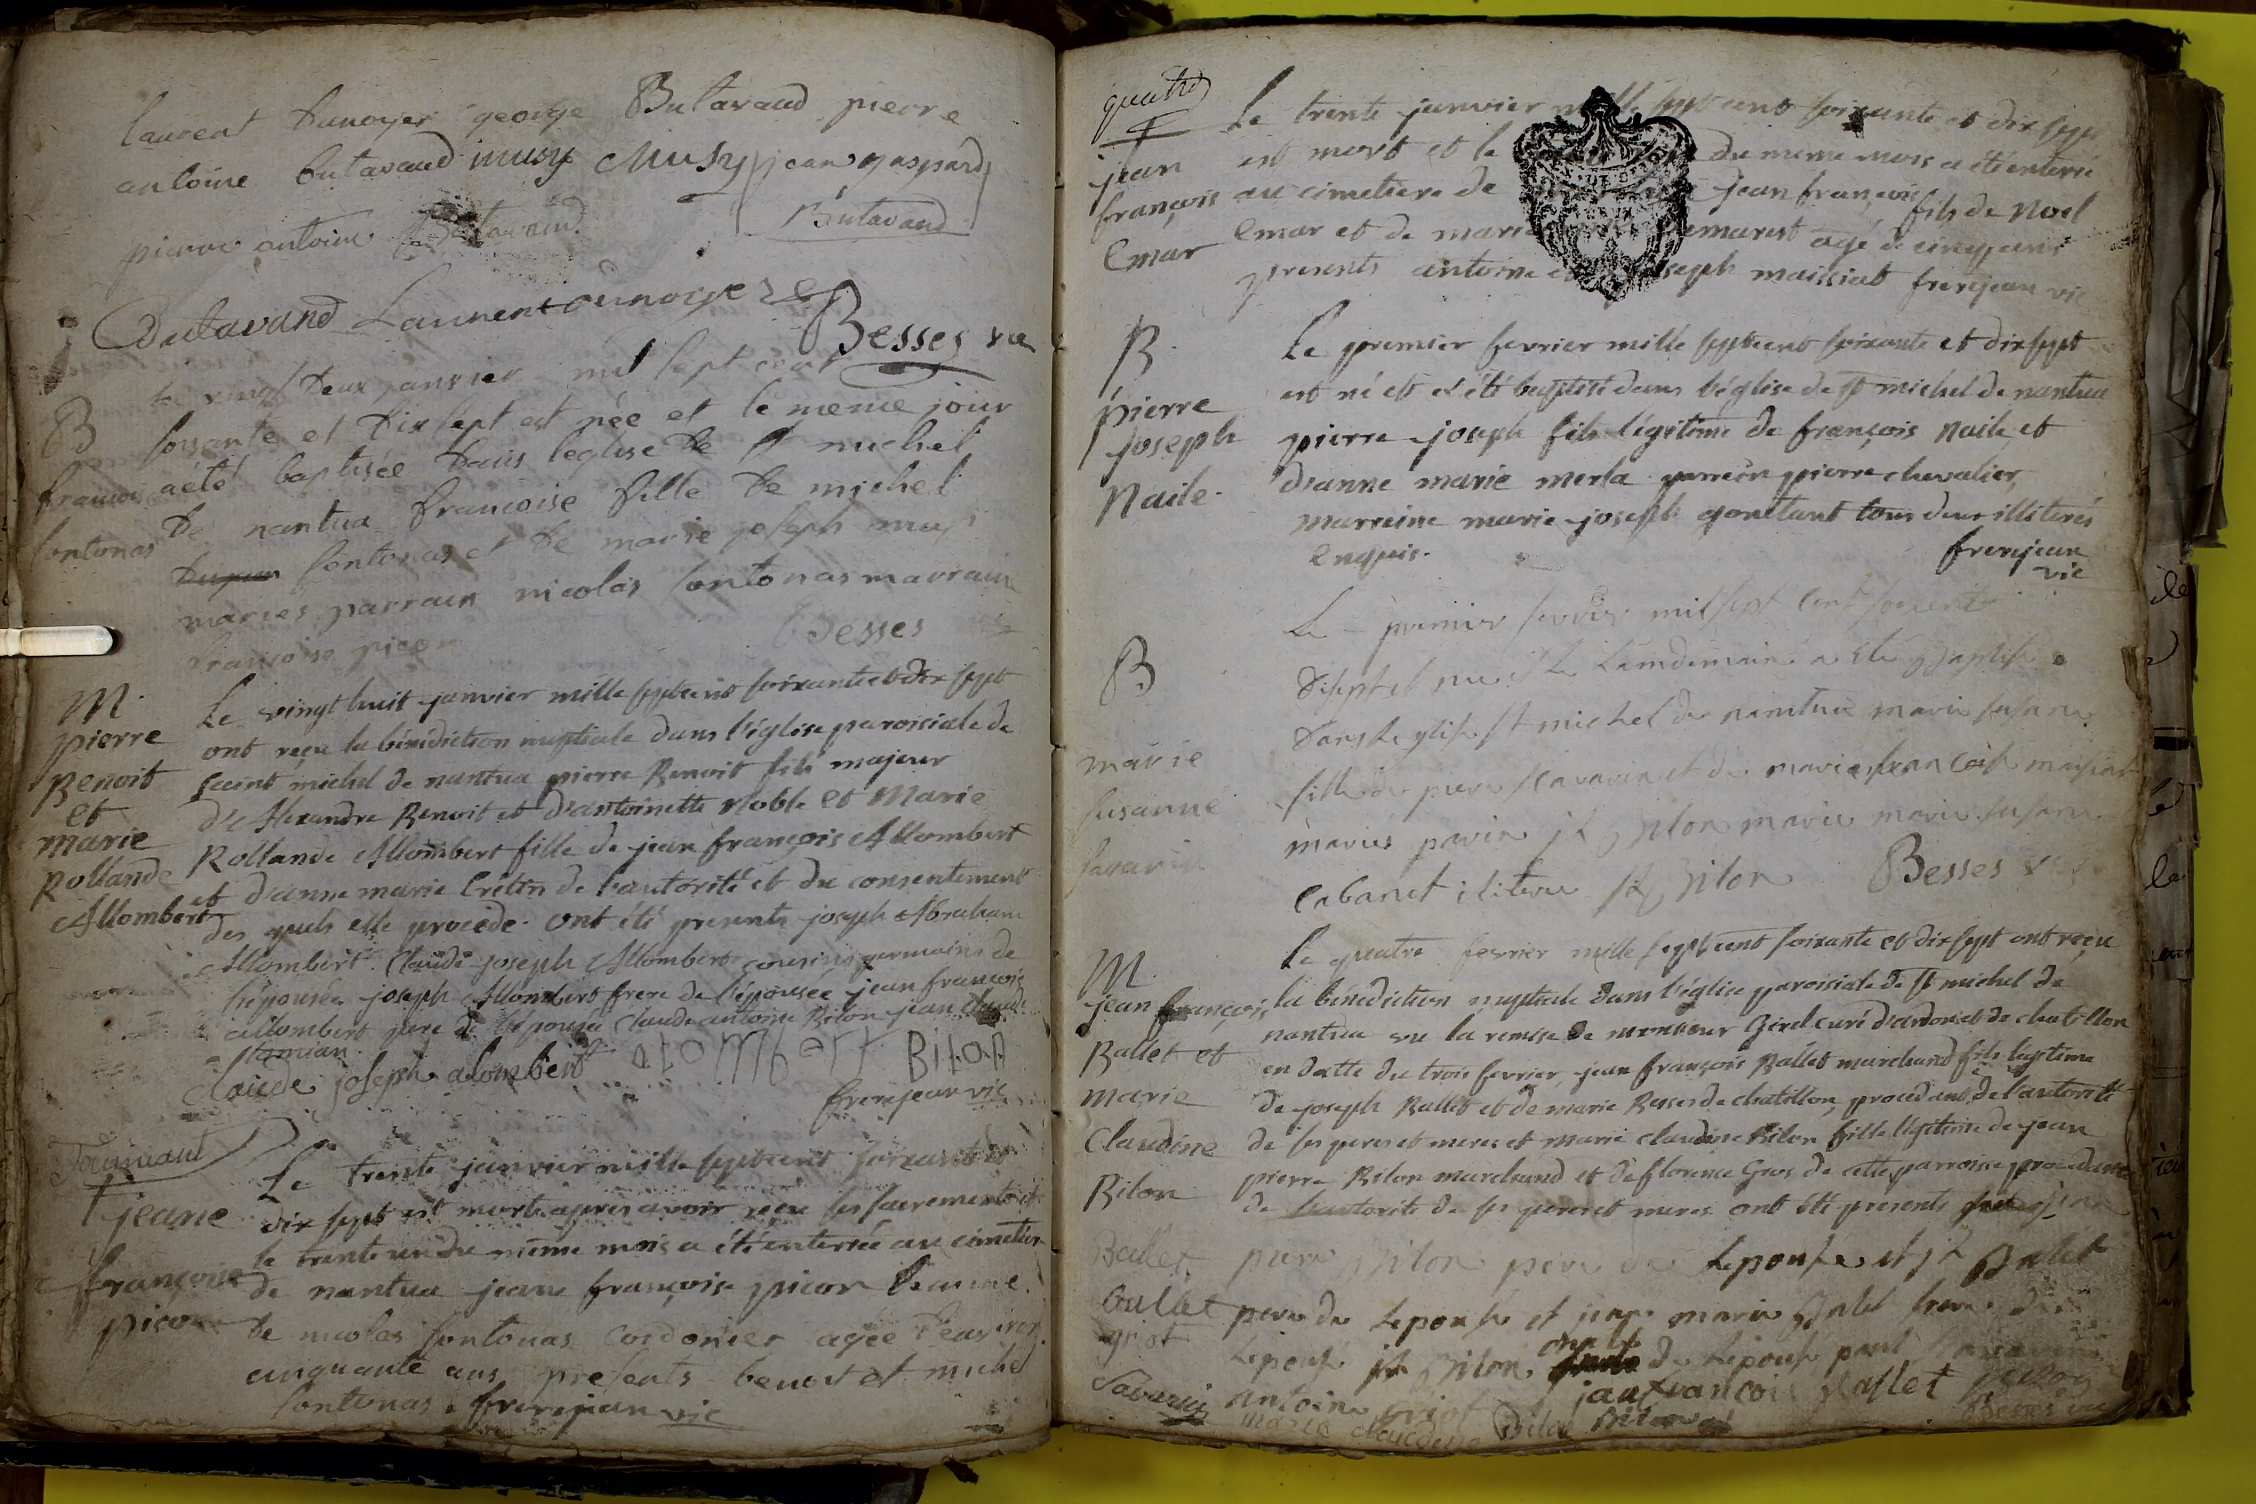 laurent Dunoyer george Butavand pierre
antoine butavand musy Musy jean gaspard
pierre antoine Butavand Butavand
Butavand Laurent Dunoyer
Besses vic
Le vingt deux janvier mil sept cent
B soisante et dix sept est née et le meme jour
francoise aété baptisée dans leglise de st michel
fontonas de nantua francoise fille de michel
fontonas et de marie joseph musi
maries parrain nicolas fontonas marraine
francoise picon Besses
M. Le vingt huit janvier mille septcent soixante et dix sept
pierre ont reçu la bénédiction nuptiale dans l'église paroisiale de
Benoit saint michel de nantua pierre Benoit fils majeur
et d'Alexandre Benoit et d'antoinette Noble et Marie
marie Rollande Allombert fille de jean françois Allombert
Rollande et d'anne marie Crétin de l'autorité et du consentement
Allombert des quels elle procède. ont été presents joseph Abraham
Allombert. Claude joseph Allombert cousins germains de
l'épousée joseph Allombert frere de l'épousée jean françois
allombert pere de l'épousée Claude antoine Bilon jean claude
claude joseph alombert alombert Bilon
frerejean vic
Le trente janvier mille septcent soixante et
jeane dix sept est morte apres avoir reçu ses sacrements et
le trente un du même mois a été enterrée au cimetiere
françoise de nantua jeane françoise picon femme
picon de nicolas fontonas cordonier agée d'environ
cinquante ans presents benoit et michel
fontonas. frerejean vic
quatre
Le trente janvier mille sept cent soixante et dix sept
jean est mort et le du meme mois a été enterré
françois au cimetiere de jean françois fils de Noel
Emar Emar et de marie emarest agé de cinq jours
presents antoine et joseph maissiat frerejean vic
B. Le premier fevrier mille septcent soixante et dix sept
est né et a été baptisé dans l'église de st michel de nantua
pierre pierre joseph fils légitime de françois Naile et
joseph d'anne marie merla parrein pierre chevalier,
Naile. marreine marie joseph gonetant tous deux illiterés
enquis. frerejean
vic
Le premier fevrier mil sept cent soixante
B disept et née et le lendemain a été baptisé
dans leglise st michel de nantua marie susane
marie fille de pierre savarin et de marie francoise maisiat
susanne mariés parin jh Bilon marie marie susane
savarin cabanet iliterée jh Bilon Besses
M. Le quatre fevrier mille septcent soixante et dix sept ont reçu
jean françois la bénédiction nuptiale dans l'église paroisiale de st michel de
nantua vu la remise de monsieur Girel curé d'ardon et de chatillon
Ballet et en datte du trois fevrier, jean françois Ballet marchand fils légitime
marie de joseph Ballet et de marie Besses de chatillon, procedant de l'autorité
Claudine de ses peres et meres et marie claudine Bilon fille légitime de jean
Bilon pierre Bilon marchand et de florence Gros de cette parroisse procedante
de l'autorité de ses peres et meres ont été presents jean
Ballet piere Bilon pere de Lepouse et jh Balet
Ballet pere de Lepoux et jean marie Balet frere de
griot Lepoux jh Bilon oncle de Lepouse paul savarin
Savarin antoine griot jan francois Ballet Bilon
marie claudine Bilon Bilon Besses vic